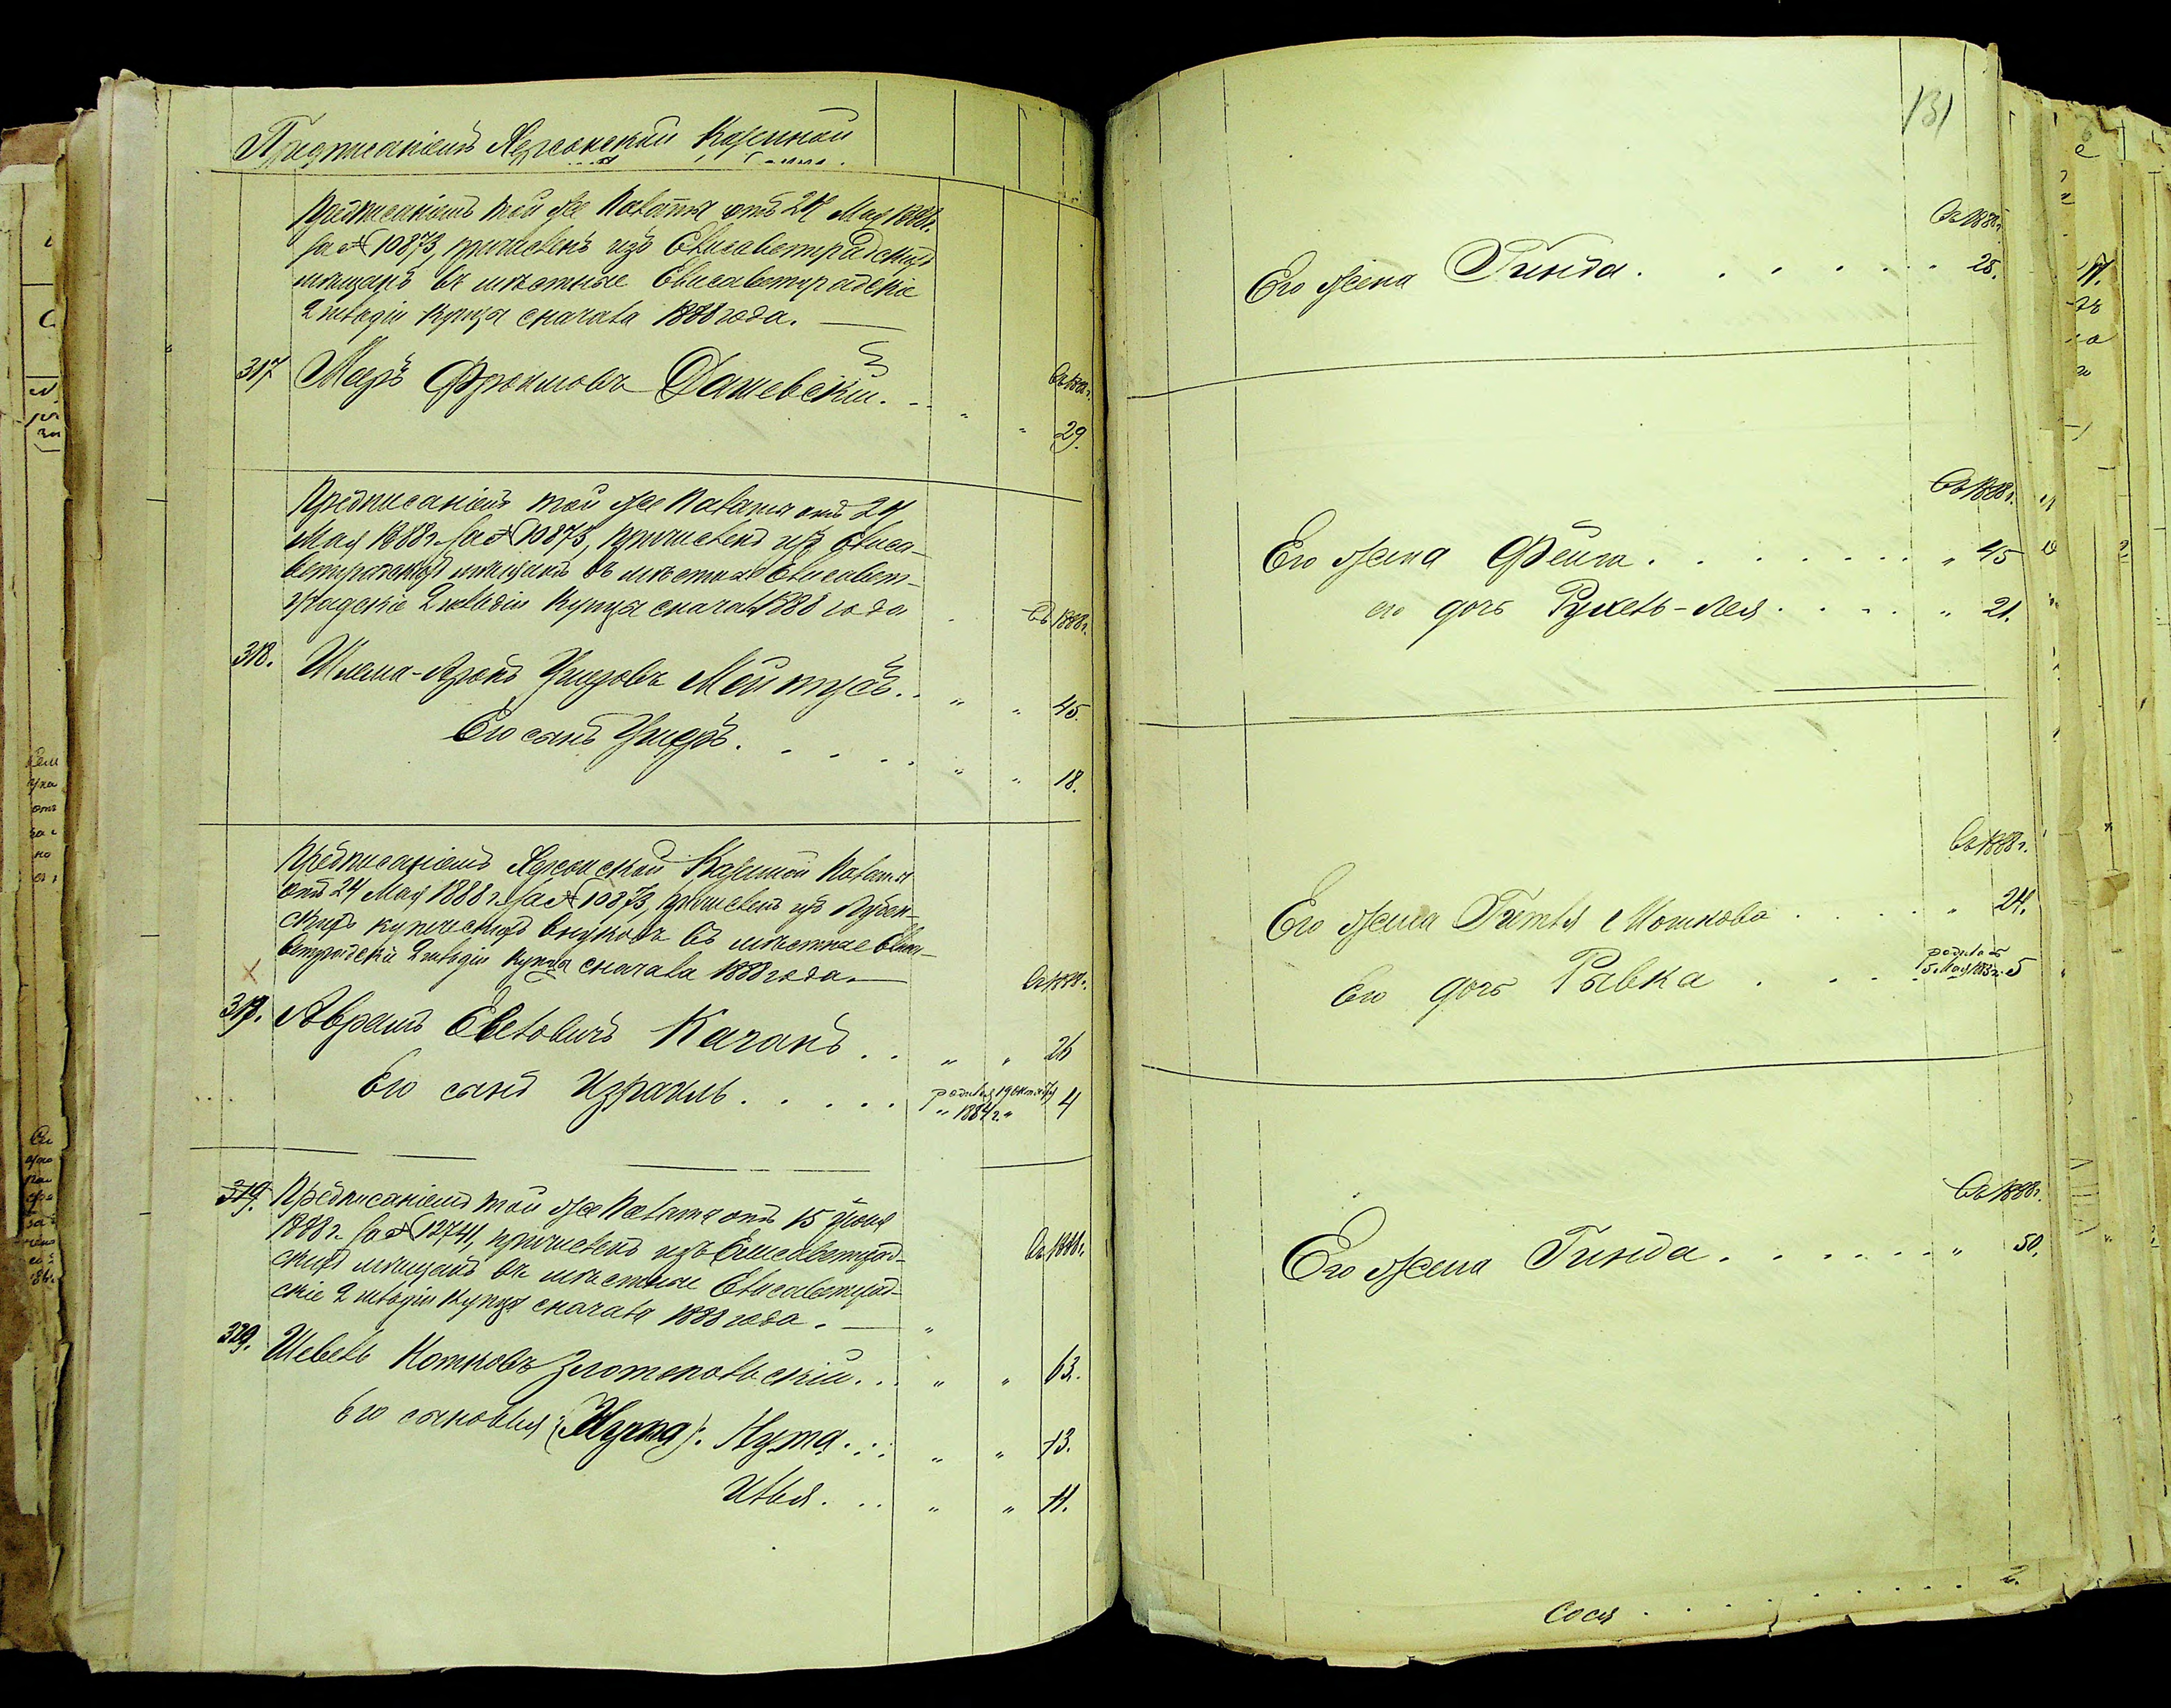 Предписаніемъ Херсонской Казенной
Предписаніемъ той же Палаты отъ 24 Мая 1888г.
за № 10873, причисленъ изъ Елисаветградскихъ
мѣщанъ въ мѣстные Елисаветградскіе
2 гильдіи купцы сначала 1888 года.
317 Мееръ Фроимовъ Дашевскій. Въ 1888г. 29.
Предписаніемъ той же Палаты отъ 24
Мая 1888г. за № 10873, причисленъ изъ Елиса-
ветградскихъ мѣщанъ въ мѣстные Елисавет-
градскіе 2 гильдіи купцы сначала 1888 года
Въ 1888г.
318. Шлема-Аронъ Ушеровъ Мейтусъ. " " 45.
Его сынъ Ушеръ. " " 18.
Предписаніемъ Херсонской Казенной Палаты
отъ 24 Мая 1888г. за № 10873, причисленъ изъ
скихъ купеческихъ внуковъ въ мѣстные Елиса-
ветградскіе 2 гильдіи купцы сначала 1888 года.
Въ 1888г.
319. Аврамъ Евелевичъ Каганъ. " " 26
Его сынъ Израиль. родился 19 Октября " 1884г. " 4
319. Предписаніемъ той же Палаты отъ 15 Іюня
1888г. за № 12741, причисленъ изъ Елисаветград-
скихъ мѣщанъ въ мѣстные Елисаветград-
скіе 2 гильдіи купцы сначала 1888 года.
Въ 1888г.
320. Шевель Нотковъ Златопольскій. " " 63.
Его сыновья: Нута. " " 13.
Илья. " " 11.
131
Въ 1888г.
Его жена Гинда. 25.
Въ 1888г.
Его жена Фейга. " 45
его дочь Рухель-Лея. " 21.
Въ 1888г.
Его жена Гитля Мошкова " 24.
Его дочь Рывка родилась 5 Мая 5
Въ 1888г.
Его жена Гинда. " 50.
Сося 2.